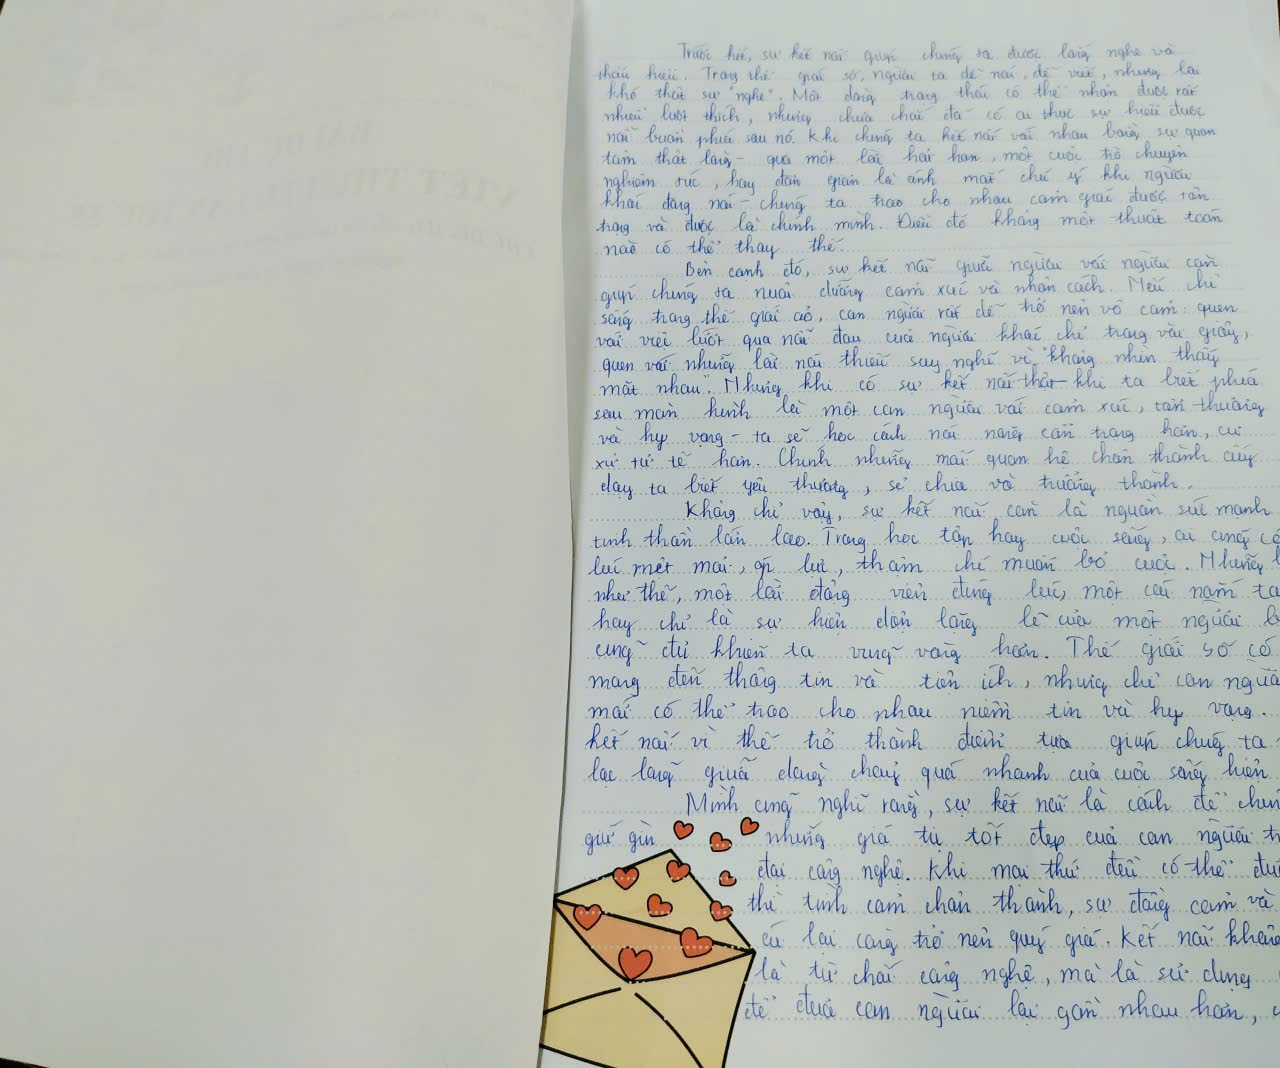 Trước hết, sự kết nối giúp chúng ta được lắng nghe và
thấu hiểu. Trong thế giới số, người ta dễ nói, dễ viết, nhưng lại
khó thật sự "nghe". Một dòng trạng thái có thể nhận được rất
nhiều lượt thích, nhưng chưa chắc đã có ai thực sự hiểu được
nỗi buồn phía sau nó. Khi chúng ta kết nối với nhau bằng sự quan
tâm thật lòng - qua một lời hỏi han, một cuộc trò chuyện
nghiêm túc, hay đơn giản là ánh mắt chú ý khi người
khác đang nói - chúng ta trao cho nhau cảm giác được tôn
trọng và được là chính mình. Điều đó không một thuật toán
nào có thể thay thế.
Bên cạnh đó, sự kết nối giữa người với người còn
giúp chúng ta nuôi dưỡng cảm xúc và nhân cách. Nếu chỉ
sống trong thế giới ảo, con người rất dễ trở nên vô cảm: quen
với việc lướt qua nỗi đau của người khác chỉ trong vài giây,
quen với những lời nói thiếu suy nghĩ vì "không nhìn thấy
mặt nhau". Nhưng khi có sự kết nối thật - khi ta biết phía
sau màn hình là một con người với cảm xúc, tổn thương
và hy vọng - ta sẽ học cách nói năng cẩn trọng hơn, cư
xử tử tế hơn. Chính những mối quan hệ chân thành ấy
dạy ta biết yêu thương, sẻ chia và trưởng thành.
Không chỉ vậy, sự kết nối còn là nguồn sức mạnh
tinh thần lớn lao. Trong học tập hay cuộc sống, ai cũng có
lúc mệt mỏi, áp lực, thậm chí muốn bỏ cuộc. Những
như thế, một lời động viên đúng lúc, một cái nắm ta
hay chỉ là sự hiện diện lặng lẽ của một người b
cũng đủ khiến ta vững vàng hơn. Thế giới số có
mang đến thông tin và tiện ích, nhưng chỉ con người
mới có thể trao cho nhau niềm tin và hy vọng.
kết nối vì thế trở thành điểm tựa giúp chúng ta
lạc lõng giữa dòng chảy quá nhanh của cuộc sống hiện
Mình cũng nghĩ rằng, sự kết nối là cách để chún
giữ gìn những giá trị tốt đẹp của con người tr
đại công nghệ. Khi mọi thứ đều có thể đư
thì tình cảm chân thành, sự đồng cảm và
lại càng trở nên quý giá. Kết nối không
là từ chối công nghệ, mà là sử dụng
để đưa con người lại gần nhau hơn,